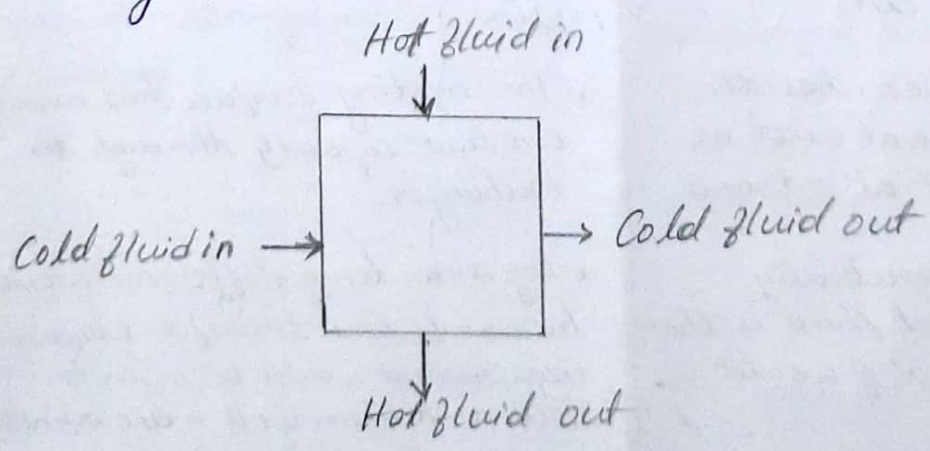 Hot fluid in
Cold fluid in
Cold fluid out
Hot fluid out